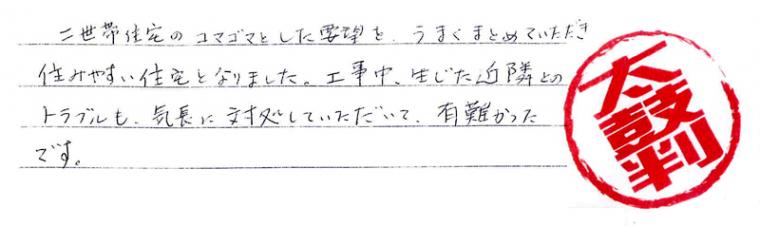 二世帯住宅のコマゴマとした要望を、うまくまとめていただき
住みやすい住宅となりました。工事中、生じた近隣との
トラブルも、気長に対処していただいて、有難かった
です。
太鼓判